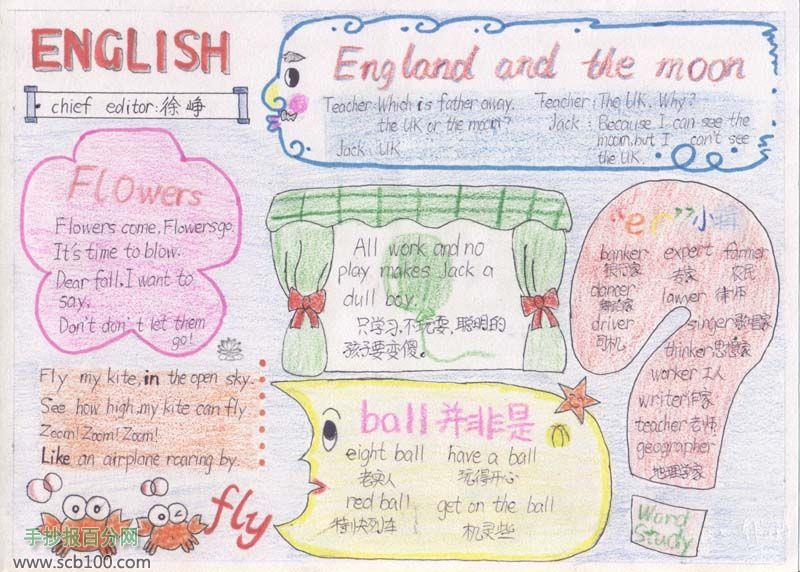 ENGLISH
chief editor:徐峥
England and the moon
Teacher:Which is father away,
the UK or the moon?
Jack: UK
Teacher: The UK. Why?
Jack: Because I can see the
moon,but I can't see
the UK.
Flowers
Flowers come,Flowers go.
It's time to blow.
Dear fall,I want to
say.
Don't don't let them
go!
All work and no
play makes Jack a
dull boy.
只学习,不玩耍,聪明的
孩子要变傻。
"er"小辑
banker expert farmer
银行家 专家 农民
dancer lawyer 律师
舞蹈家
driver singer歌唱家
司机 thinker思想家
worker 工人
writer作家
teacher老师
geographer
地理学家
Word
Study
Fly my kite,in the open sky.
See how high,my kite can fly
Zoom! Zoom! Zoom!
Like an airplane roaring by.
fly
ball 并非是
eight ball have a ball
老实人 玩得开心
red ball get on the ball
特快列车 机灵些
手抄报百分网
www.scb100.com